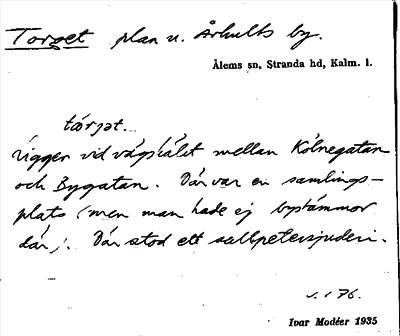 Torget plan u. Århults by.
Ålems sn, Stranda hd, Kalm. l.
tårjət.
Ligger vid vägskälet mellan Kölnegatan
och Bygatan. Där var en samlings-
plats (men man hade ej bystämmor
där). Där stod ett salpetersjuderi.
s. 176.
Ivar Modéer 1935